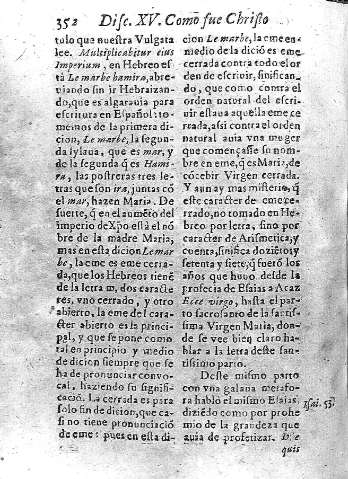 352 Disc. XV. Como fue Christo
tulo que nuestra Vulgata
lee. Multiplicabitur eius
Imperium, en Hebreo es-
tà Le marbe hamira, abre-
viando sin ir Hebraizan-
do, que es algarauia para
escritura en Español: to-
memos de la primera di-
cion, Le marbe, la segun-
da sylaua, que es mar, y
de la segunda q̃ es Hami-
ra, las postreras tres le-
tras que son ira, juntas cõ
el mar, hazen Maria. De
suerte, q̃ en el aumẽto del
imperio de Xp̃o està el nõ
bre de la madre Maria,
mas en esta dicion Le mar
be, la eme es eme cerra-
da, que los Hebreos tienẽ
de la letra m, dos caracte
res, vno cerrado, y otro
abierto, la eme del carac-
ter abierto es la princi-
pal, y que se pone como
tal en principio y medio
de dicion siempre que se
ha de pronunciar convo-
cal, haziendo su signifi-
cació. La cerrada es para
solo fin de dicion, que ca-
si no tiene pronunciació
de eme: pues en esta di-
cion Le marbe, la eme en
medio de la dició es eme
cerrada contra todo el or
den de escrivir, sinifican-
do, que como contra el
orden natural del escri-
uir estaua aquella eme ce
rrada, asi contra el orden
natural auia vna muger
que començasse su nom-
bre en eme, q̃ es Maria, de
cõcebir Virgen cerrada.
Y aun ay mas misterio, q̃
este caracter de eme ce-
rrado, no tomado en He-
breo por letra, sino por
caracter de Arismetica, y
cuenta, sinifica doziẽtos y
setenta y siete, q̃ fuerõ los
años que huvo desde la
profecia de Esaias a Acaz
Ecce virgo, hasta el par-
to sacrosanto de la santis-
sima Virgen Maria, don-
de se vee bien claro ha-
blar a la letra deste san-
tissimo parto.
Deste mismo parto
con vna galana metafo-
ra hablò el mismo Esaias,
diziẽdo como por prohe
mio de la grandeza que
auia de profetizar. Do
quis
Isai. 53.